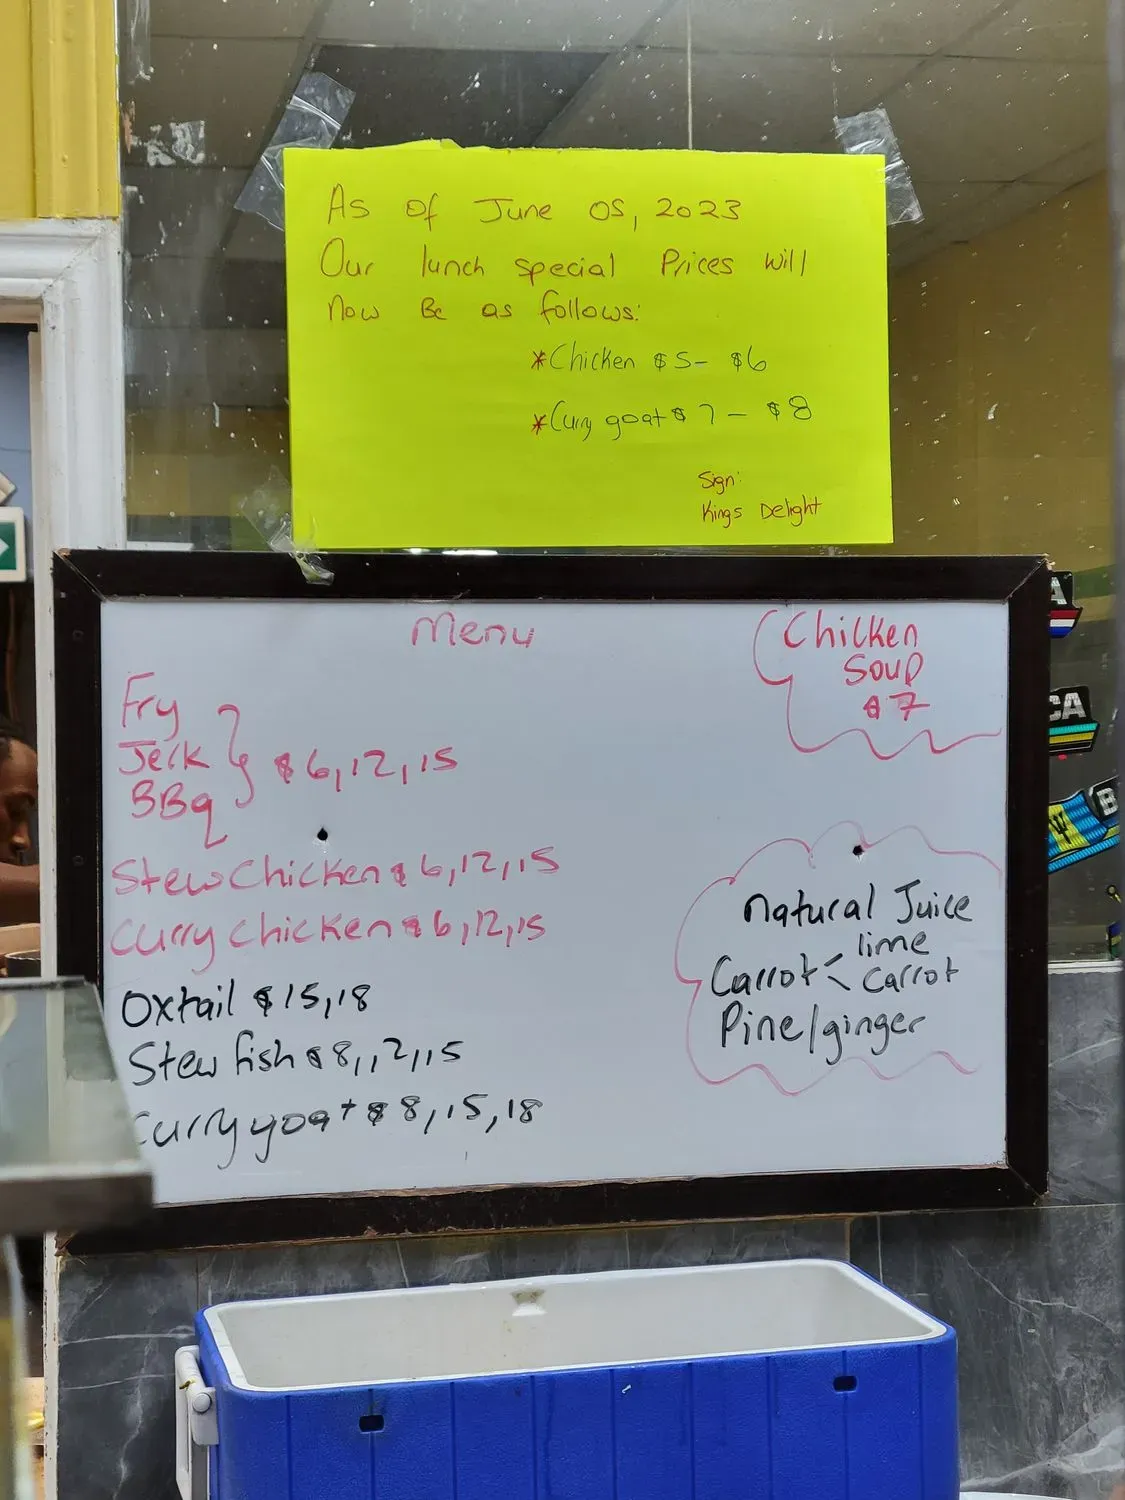 As of June 05, 2023
Our lunch special Prices will
now Be as follows:
*Chicken $5- $6
*Curry goat $7 - $8
Sign:
Kings Delight
Menu
Chicken
Soup
$7
Fry
Jerk
BBq
$6,12,15
Stew Chicken $6,12,15
Curry chicken $6,12,15
Oxtail $15,18
Stew fish $8,12,15
Curry goat $8,15,18
natural Juice
lime
Carrot < carrot
Pine/ginger
A
CA
B